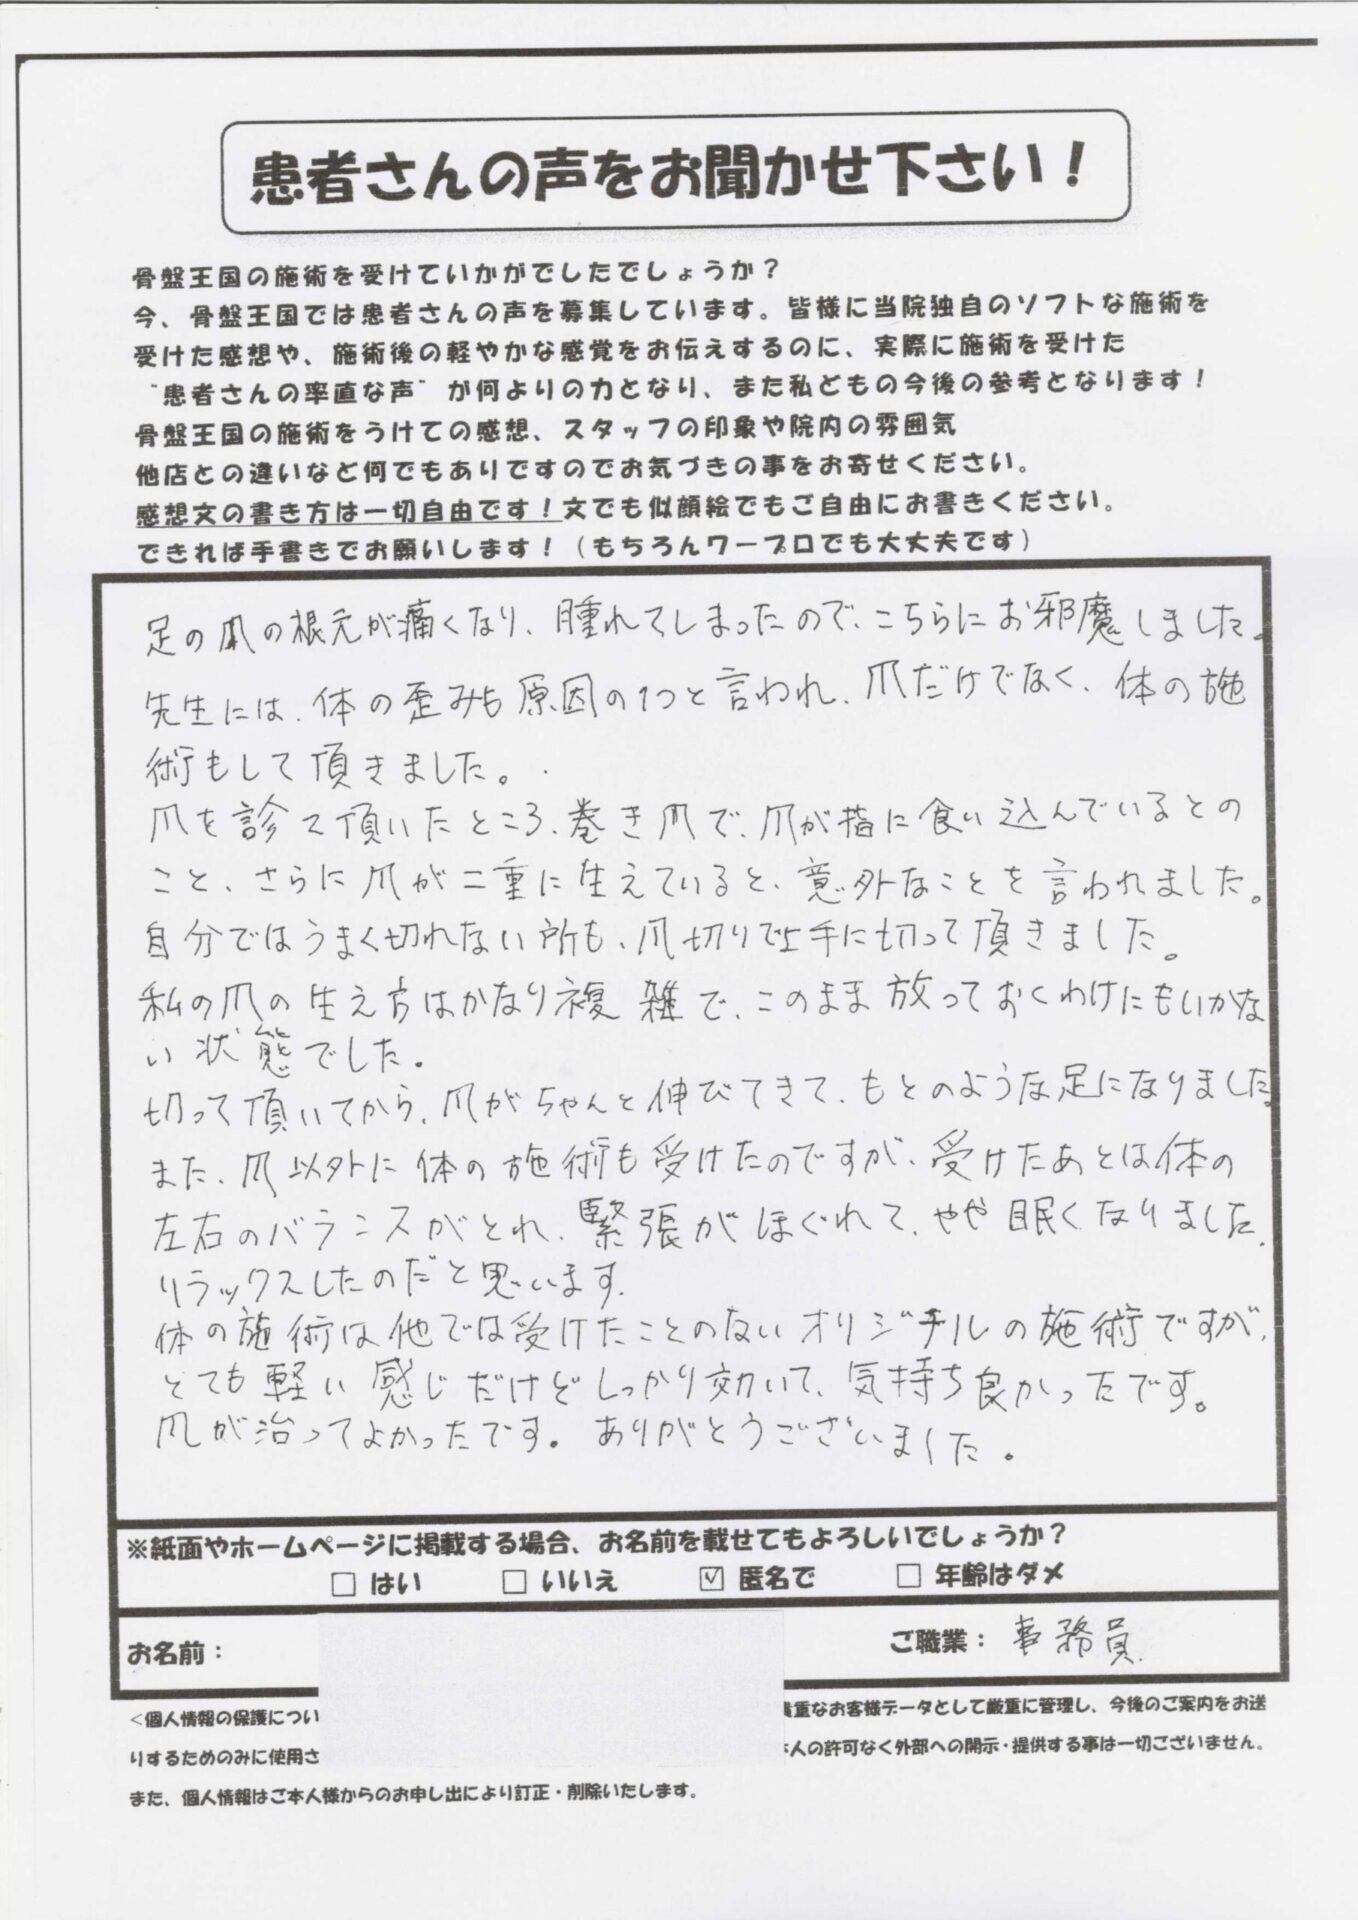 患者さんの声をお聞かせ下さい!
骨盤王国の施術を受けていかがでしたでしょうか?
今、骨盤王国では患者さんの声を募集しています。皆様に当院独自のソフトな施術を
受けた感想や、施術後の軽やかな感覚をお伝えするのに、実際に施術を受けた
"患者さんの率直な声" が何よりの力となり、また私どもの今後の参考となります!
骨盤王国の施術をうけての感想、スタッフの印象や院内の雰囲気
他店との違いなど何でもありですのでお気づきの事をお寄せください。
感想文の書き方は一切自由です!文でも似顔絵でもご自由にお書きください。
できれば手書きでお願いします!(もちろんワープロでも大丈夫です)
足の爪の根元が痛くなり、腫れてしまったので、こちらにお邪魔しました。
先生には、体の歪みも原因の1つと言われ、爪だけでなく、体の施
術もして頂きました。
爪を診て頂いたところ、巻き爪で、爪が指に食い込んでいるとの
こと、さらに爪が二重に生えていると、意外なことを言われました。
自分ではうまく切れない所も、爪切りで上手に切って頂きました。
私の爪の生え方はかなり複雑で、このまま放っておくわけにもいかな
い状態でした。
切って頂いてから、爪がちゃんと伸びてきて、もとのような足になりました。
また、爪以外に体の施術も受けたのですが、受けたあとは体の
左右のバランスがとれ、緊張がほぐれて、やや眠くなりました。
リラックスしたのだと思います。
体の施術は他では受けたことのないオリジナルの施術ですが、
とても軽い感じだけどしっかり効いて、気持ち良かったです。
爪が治ってよかったです。ありがとうございました。
※紙面やホームページに掲載する場合、お名前を載せてもよろしいでしょうか?
□ はい □ いいえ ☑ 匿名で □ 年齢はダメ
お名前: ご職業: 事務員
<個人情報の保護につい 貴重なお客様データとして厳重に管理し、今後のご案内をお送
りするためのみに使用さ 本人の許可なく外部への開示・提供する事は一切ございません。
また、個人情報はご本人様からのお申し出により訂正・削除いたします。